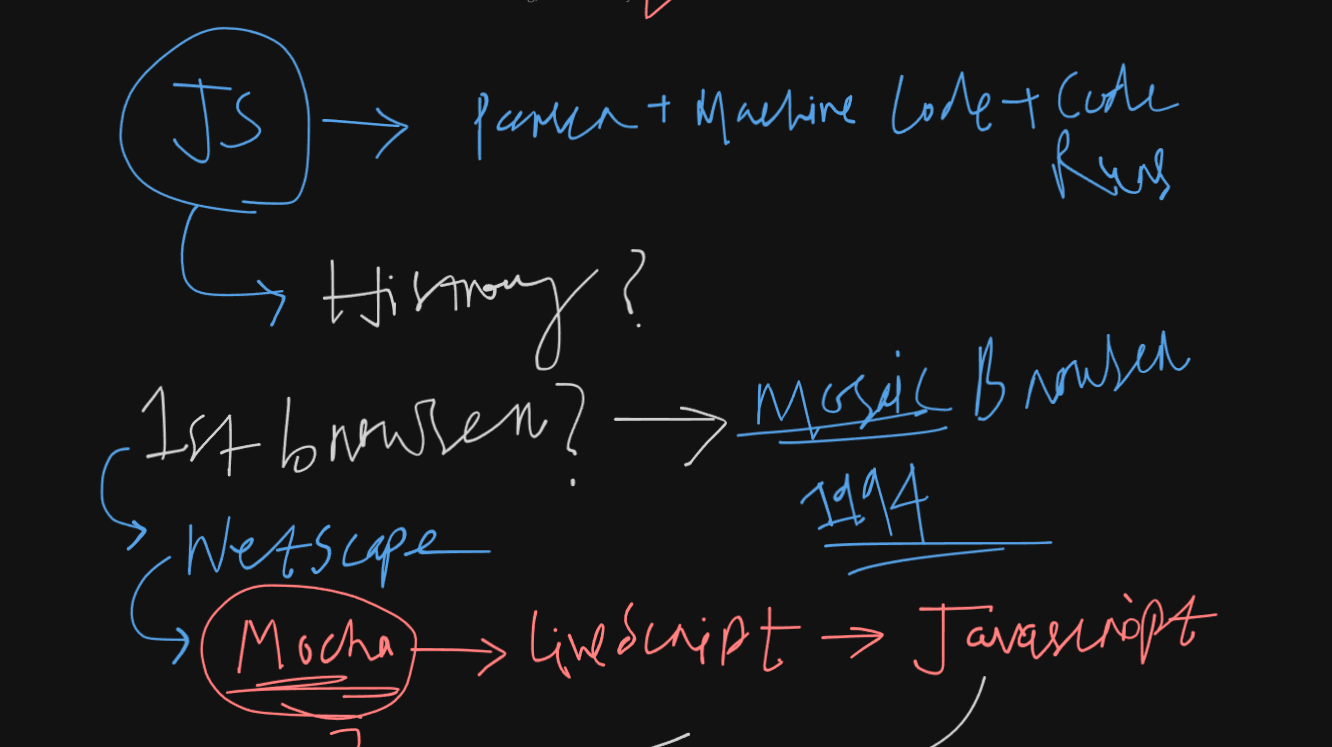 JS → Parser + Machine Code + Code
Runs
History?
1st browser? → Mosaic Browser
1994
Netscape
Mocha → LiveScript → Javascript